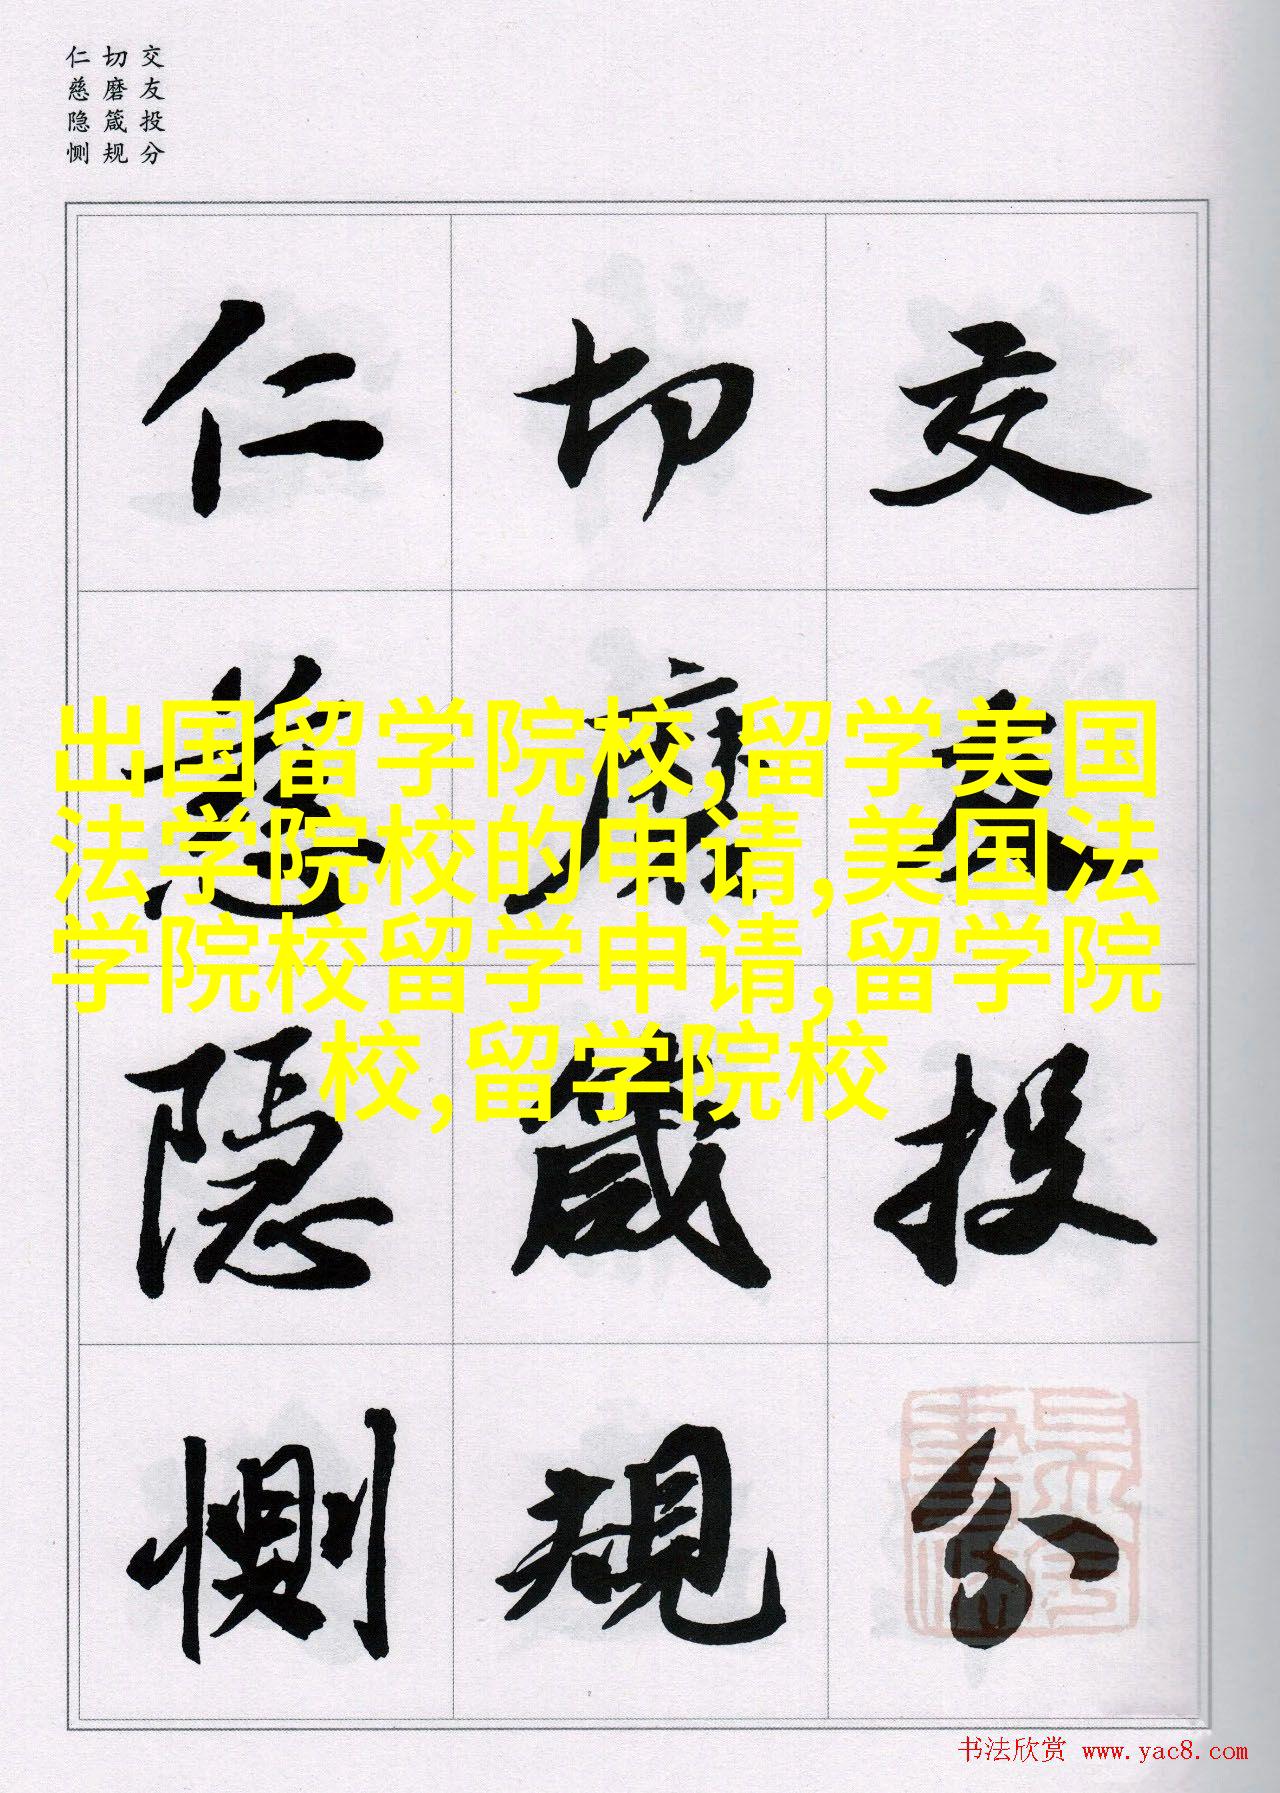 交友投分
切磨箴规
仁慈隐恻
交友投分
切磨箴规
仁慈隐恻
出国留学院校,留学美国
法学院校的申请,美国法
学院校留学申请,留学院
校,留学院校
书法欣赏 www.yac8.com